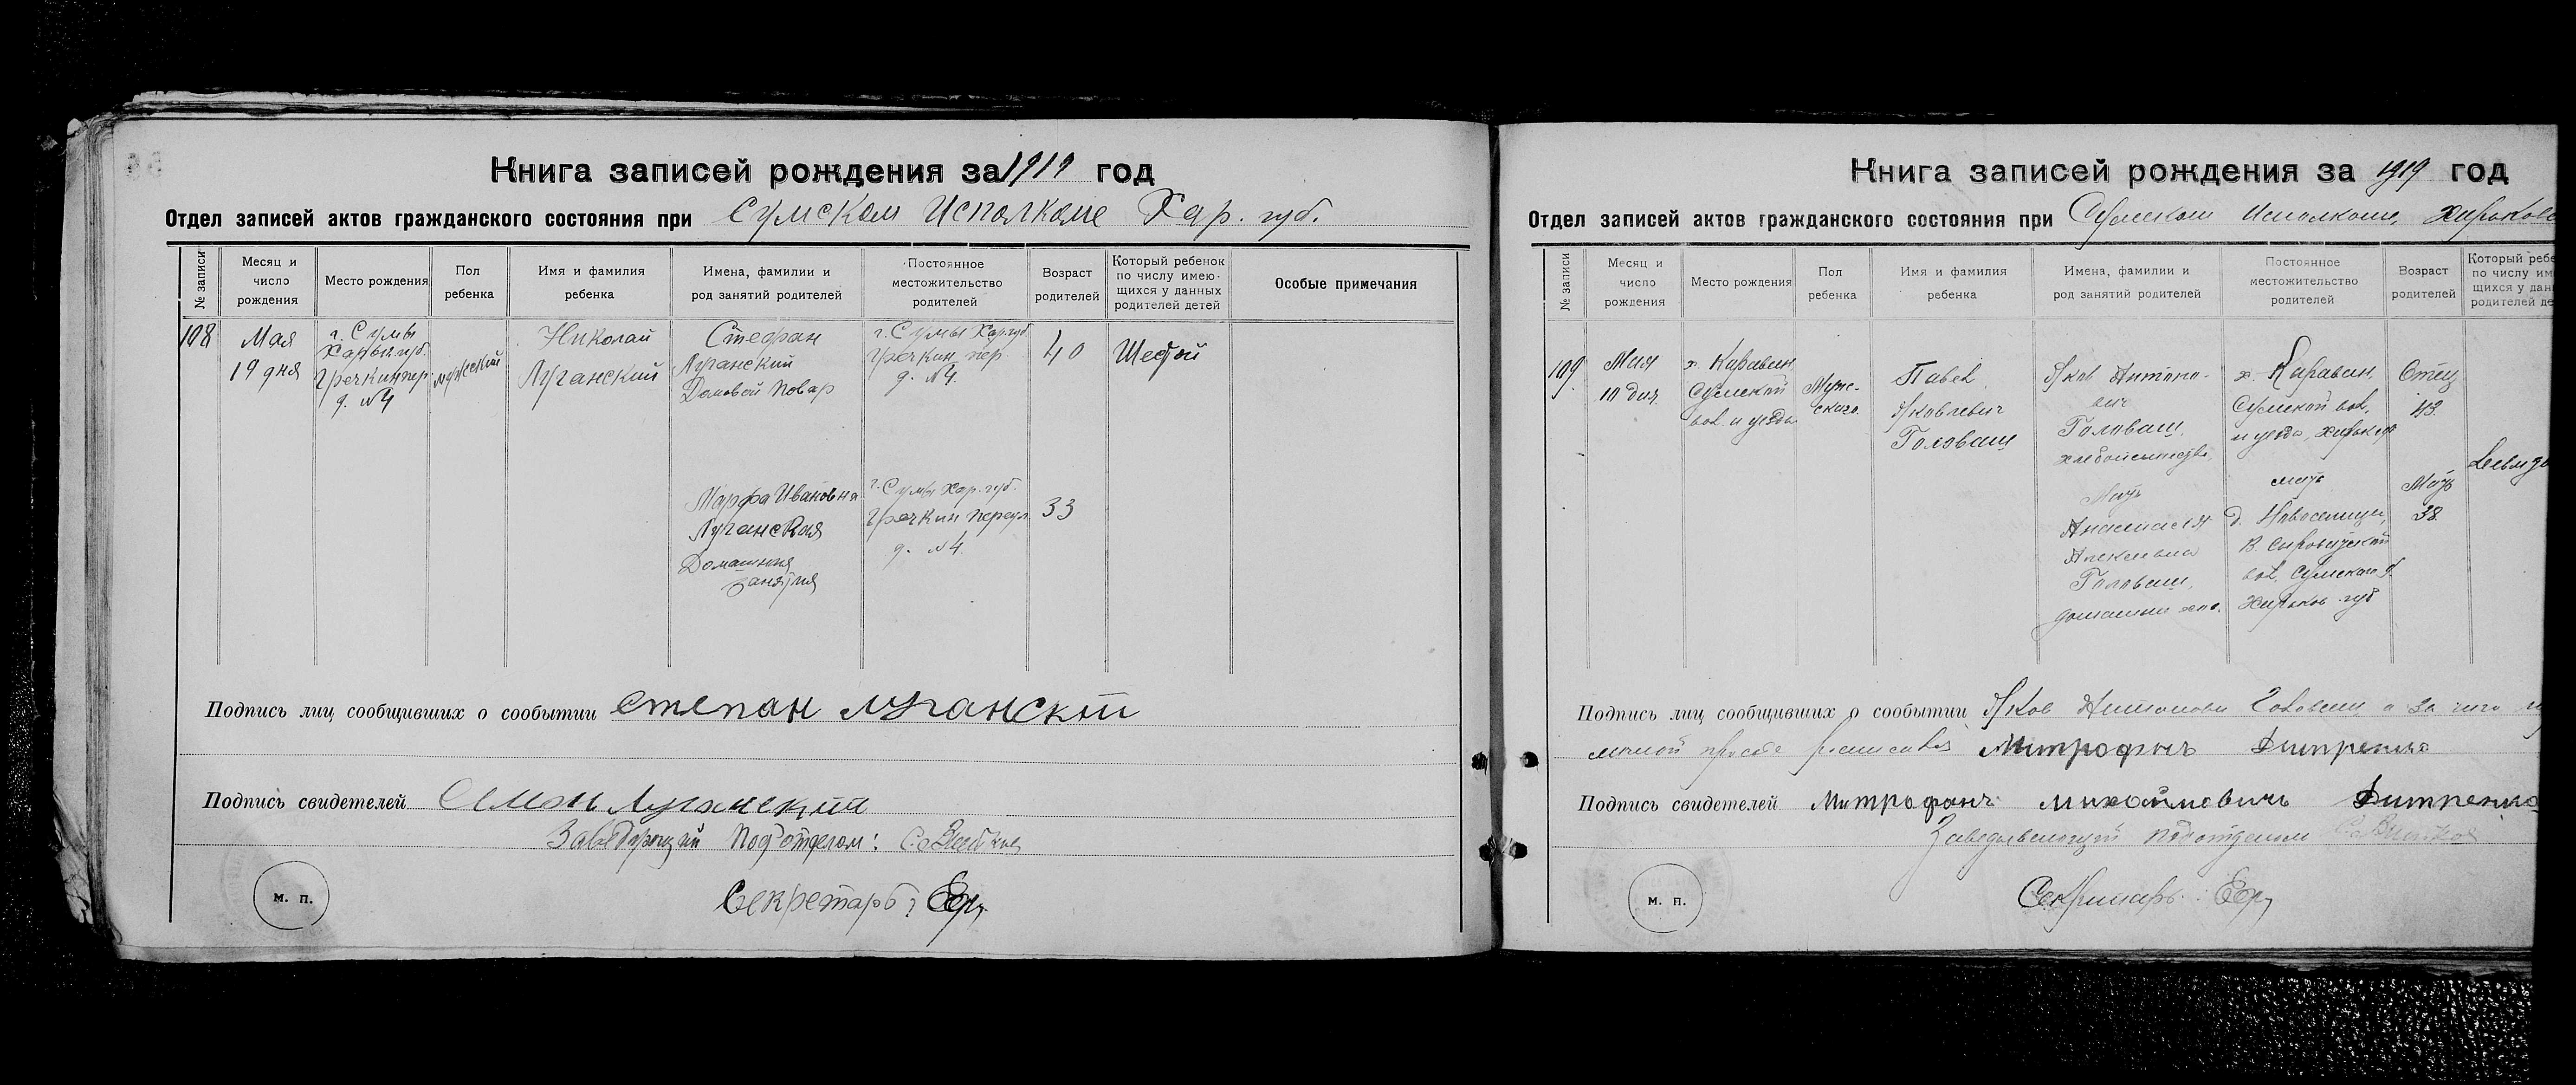 Книга записей рождения за 1919 год
Отдел записей актов гражданского состояния при Сумском Исполкоме Хар. губ.
№ записи
Месяц и число рождения
Место рождения
Пол ребенка
Имя и фамилия ребенка
Имена, фамилии и род занятий родителей
Постоянное местожительство родителей
Возраст родителей
Который ребенок по числу имею-щихся у данных родителей детей
Особые примечания
108
Мая
19 дня
г. Сумы
Гречкин пер.
д. №4
мужеский
Николай
Луганский
Стефан
Луганский
Домовой повар
г. Сумы Хар. губ.
Гречкин пер.
д. №4.
40
Шестой
Марфа Ивановна
Луганская
Домашния
занятия
г. Сумы Хар. губ.
Гречкин переул.
д. №4.
33
Подпись лиц сообщивших о сообытии Степан Луганский
Подпись свидетелей Семен Луганский
Заведующий Подотделом:
Секретарь:
м. п.
Книга записей рождения за 1919 год
Отдел записей актов гражданского состояния при Сумском Исполкоме,
№ записи
Месяц и число рождения
Место рождения
Пол ребенка
Имя и фамилия ребенка
Имена, фамилии и род занятий родителей
Постоянное местожительство родителей
Возраст родителей
Который ребе
по числу им
щихся у дан
родителей де
109
Мая
10 дня
х. Караван
Сумской
вол. и уезда
Муже-
ского.
Павел
Яковлевич
Головаш
Яков Антоно-
вич
Головаш,
х. Караван,
Сумской вол.
и уезда,
Отец
43.
Мать
Анастасия
Алексеевна
Головаш,
мать
д. Новоселица,
В. Сыроватской
вол. Сумского у.
Харьков. губ
Мать
38.
Подпись лиц сообщивших о сообытии Яков Антонович Головаш а за него
личной просьбе росписался Митрофанъ
Подпись свидетелей Митрофанъ Михайловичъ
Заведывающий подотделом
Секретарь:
м. п.